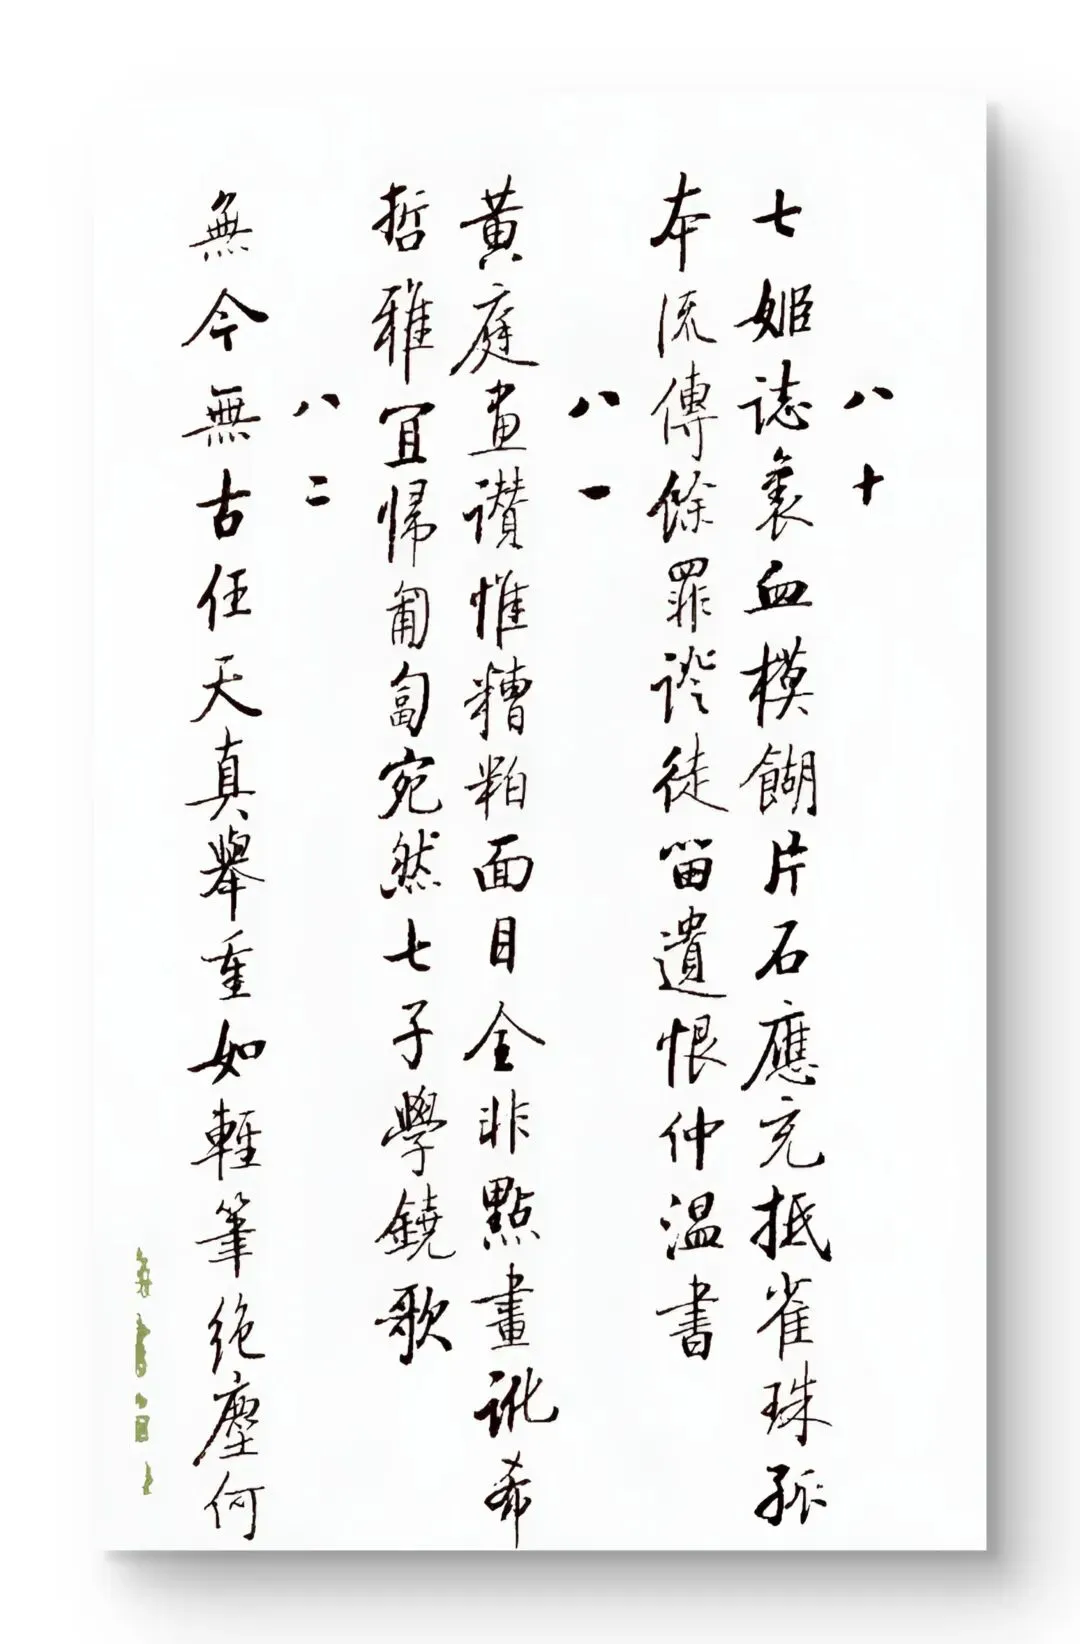 八十
七姬誌裏血模餬片石應充抵雀珠孤
本流傳餘罪證徒留遺恨仲温書
八一
黃庭畫讚惟糟粕面目全非點畫訛希
哲雅宜歸匍匐宛然七子學鐃歌
八二
無今無古任天真舉重如輕筆絶塵何